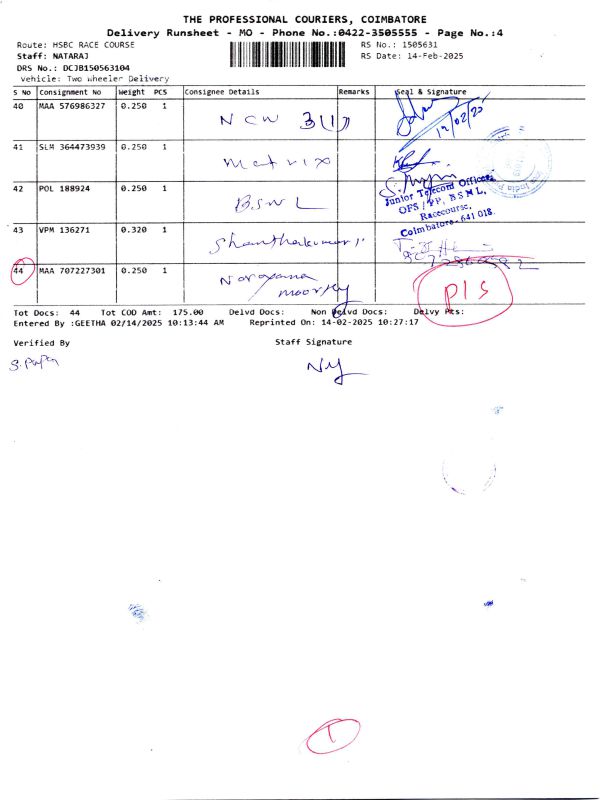 THE PROFESSIONAL COURIERS, COIMBATORE
Delivery Runsheet - MO - Phone No.:0422-3505555 - Page No.:4
Route: HSBC RACE COURSE RS No.: 1505631
Staff: NATARAJ RS Date: 14-Feb-2025
DRS No.: DCJB150563104
Vehicle: Two Wheeler Delivery
S No Consignment No Weight PCS Consignee Details Remarks Seal & Signature
40 MAA 576986327 0.250 1 New
41 SLM 364473939 0.250 1 Matrix
42 POL 188924 0.250 1 BSNL
Junior Telecom Officer,
OFS / PP, BSNL,
Racecourse,
Coimbatore - 641 018.
43 VPM 136271 0.320 1 Shanthakumari
44 MAA 707227301 0.250 1 Narayana
moorthy
Pls
Tot Docs: 44 Tot COD Amt: 175.00 Delvd Docs: Non Delvd Docs: Delvy Pts:
Entered By :GEETHA 02/14/2025 10:13:44 AM Reprinted On: 14-02-2025 10:27:17
Verified By Staff Signature